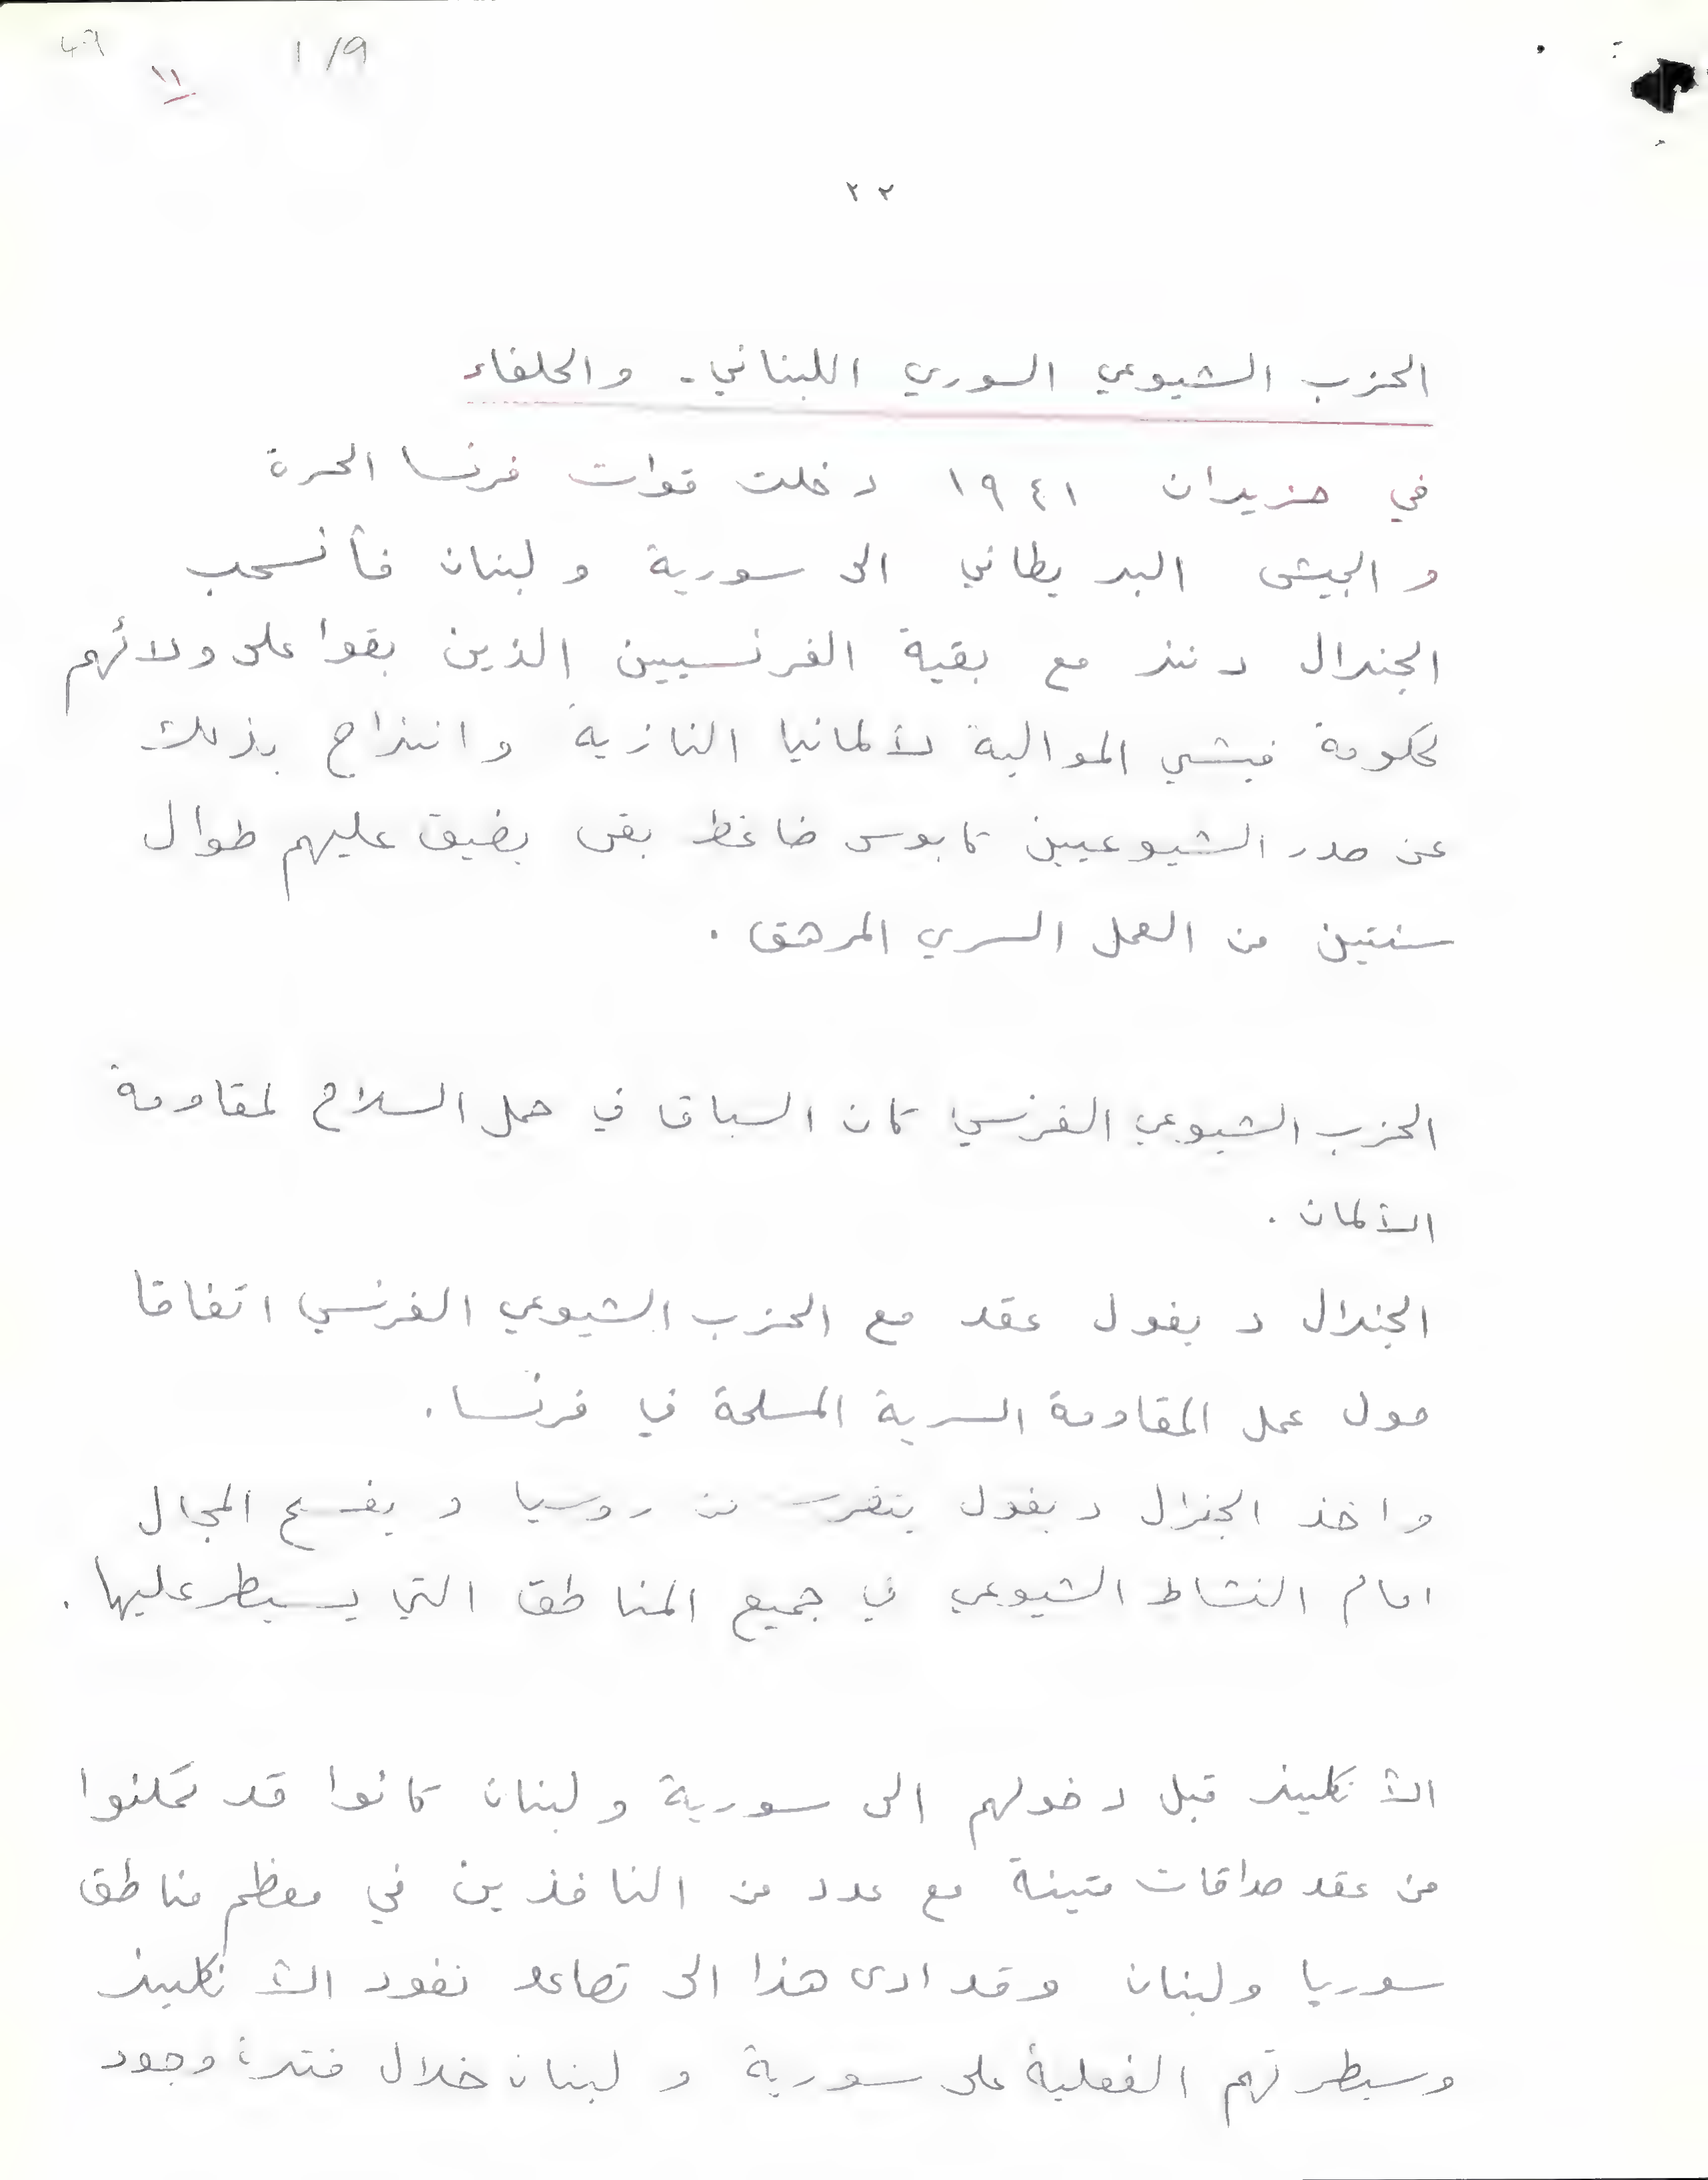 1/9
١١
٢٢
الحزب الشيوعي السوري اللبناني - والحلفاء
في حزيران ١٩٤١ دخلت قوات فرنسا الحرة
و الجيش البريطاني الى سورية و لبنان فأنسحب
الجنرال دنتز مع بقية الفرنسيين الذين بقوا على ولائهم
لحكومة فيشي الموالية لألمانيا النازية وانزاح بذلك
عن صدر الشيوعيين كابوس ضاغط بقى يضيق عليهم طوال
سنتين من العمل السري المرهق .
الحزب الشيوعي الفرنسي كان السباق في حمل السلاح لمقاومة
الألمان .
الجنرال ديغول عقد مع الحزب الشيوعي الفرنسي اتفاقا
حول عمل المقاومة السرية المسلحة في فرنسا .
واخذ الجنرال ديغول يتقرب من روسيا و يفسح المجال
امام النشاط الشيوعي في جميع المناطق التي يسيطر عليها .
الأنكليز قبل دخولهم الى سورية و لبنان كانوا قد تمكنوا
من عقد صداقات متينة مع عدد من النافذين في معظم مناطق
سوريا ولبنان وقد ادى هذا الى تصاعد نفود الأنكليز
وسيطرتهم الفعلية على سورية و لبنان خلال فترة وجود